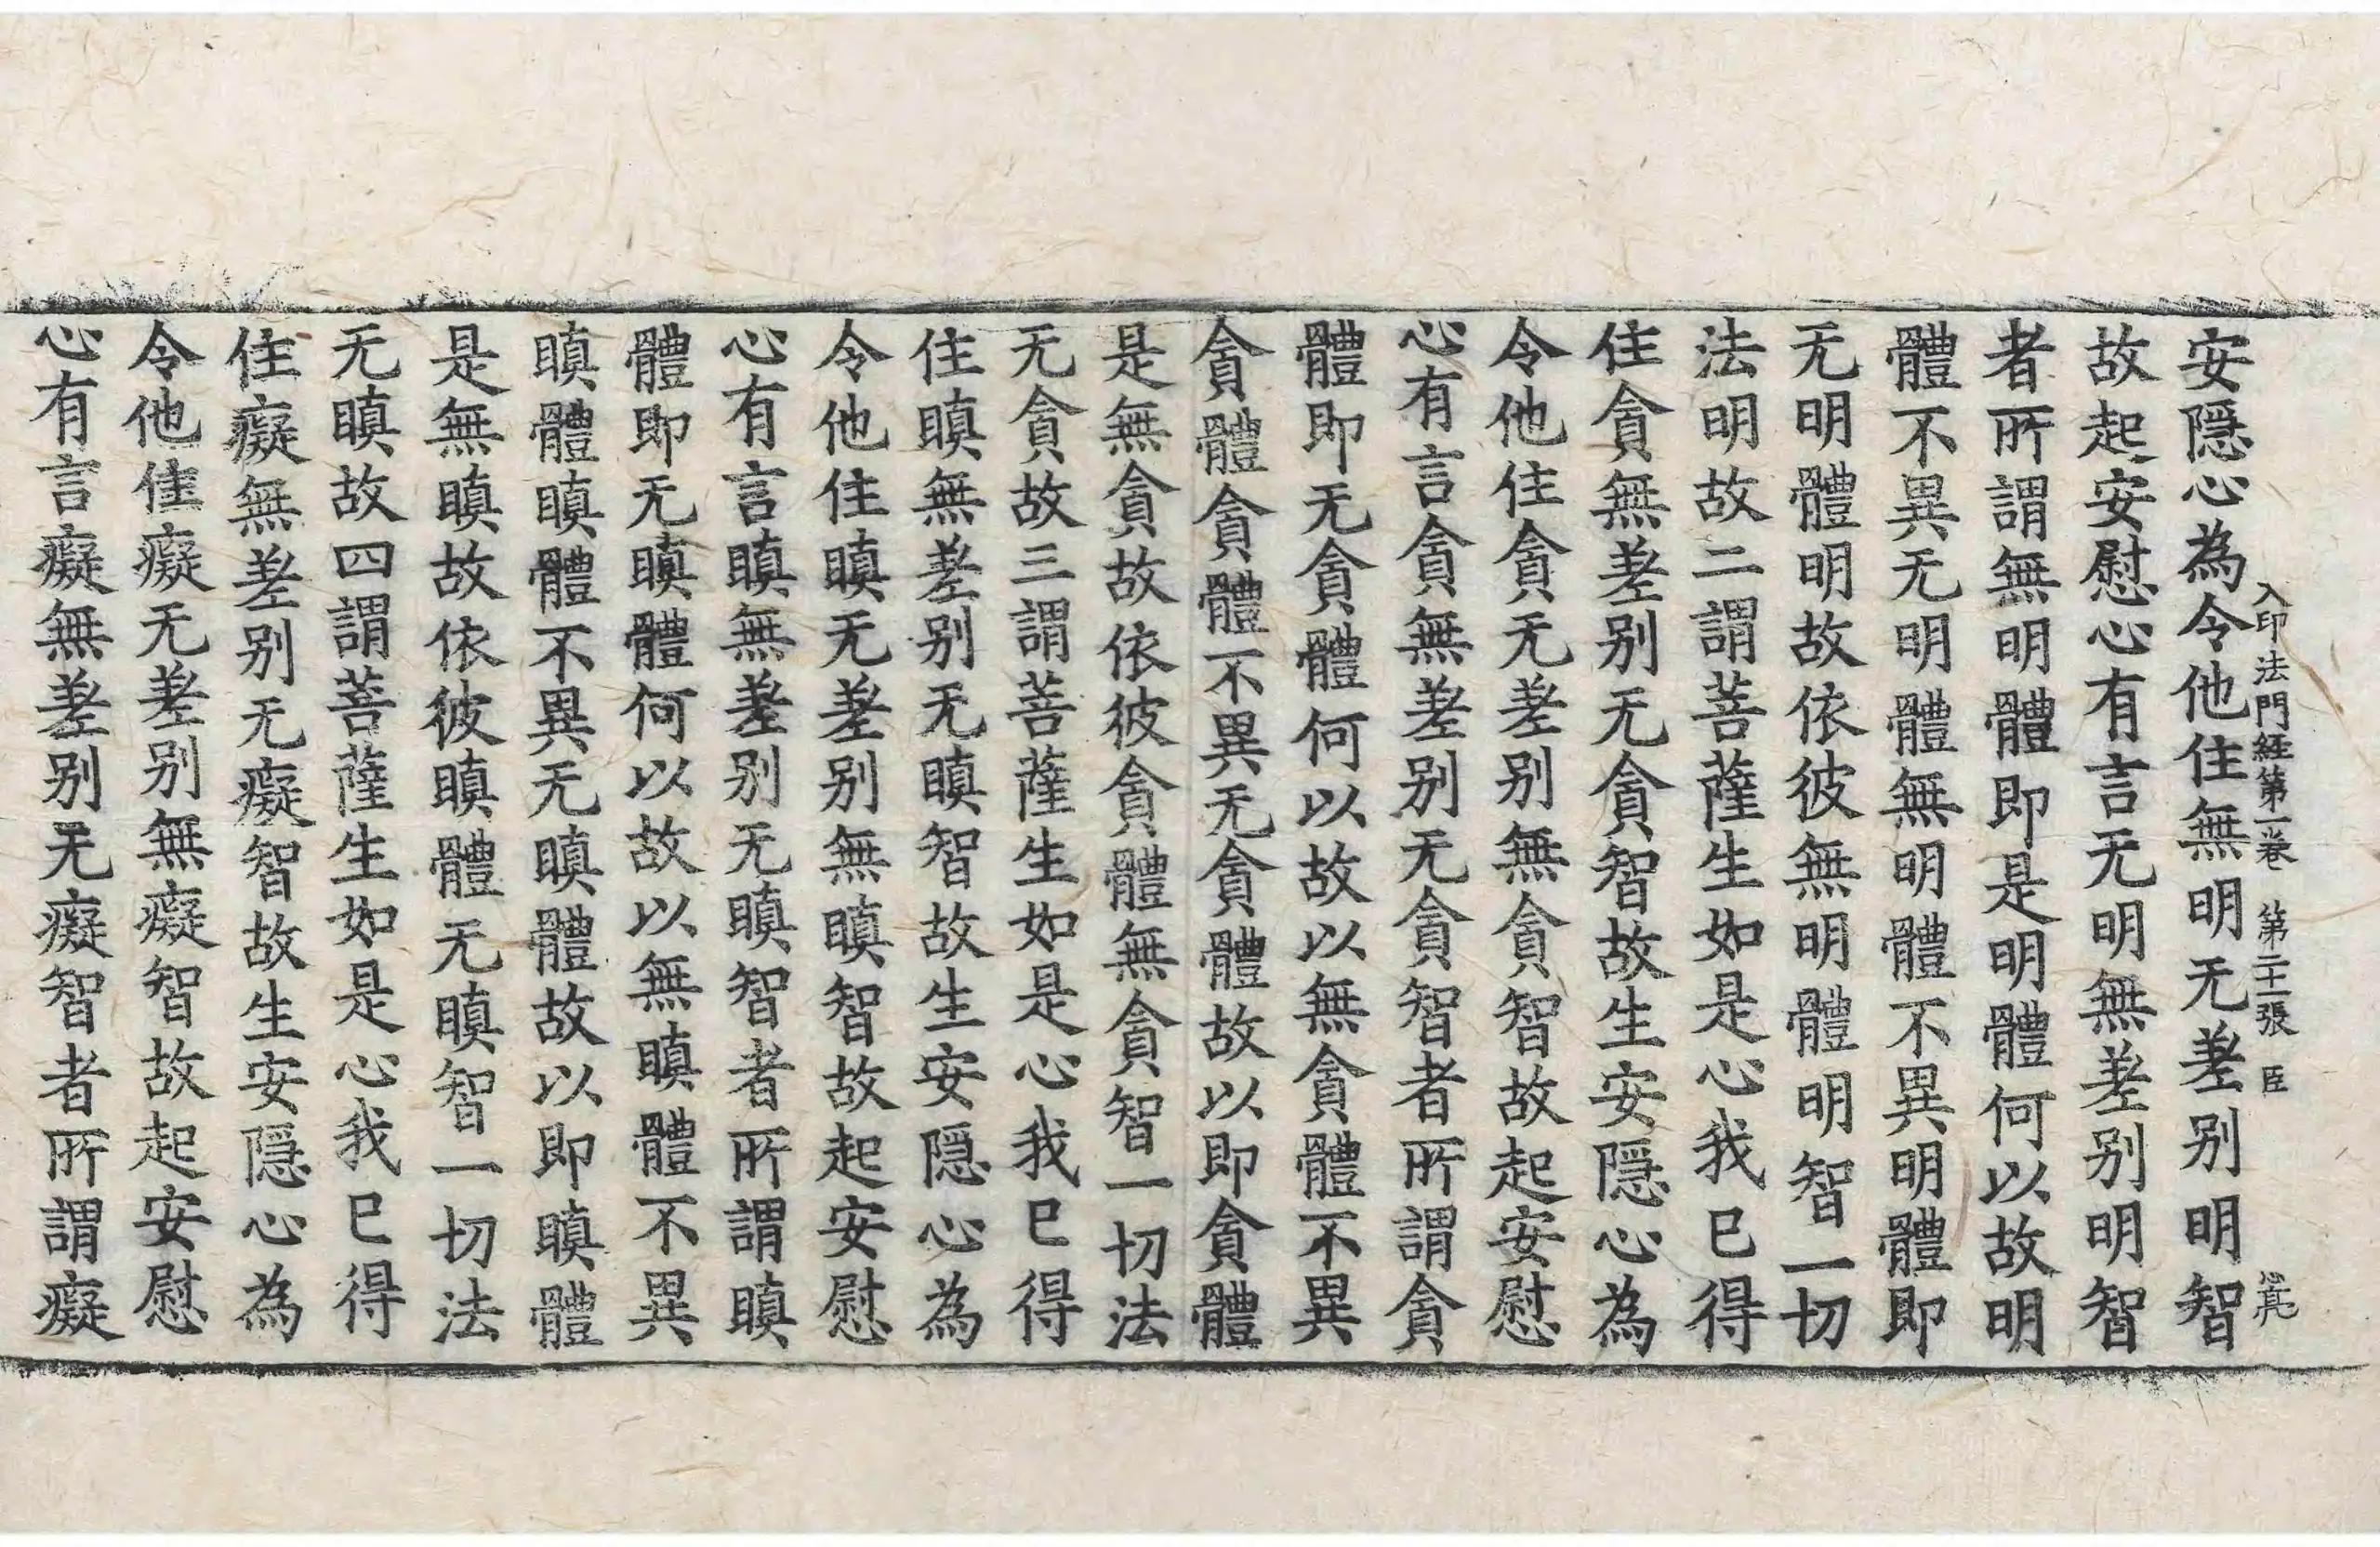 入印法門經第一卷 第二十一張 臣
安隱心為令他住無明无差别明智
故起安慰心有言无明無差别明智
者所謂無明體即是明體何以故明
體不異无明體無明體不異明體即
无明體明故依彼無明體明智一切
法明故二謂菩薩生如是心我已得
住貪無差别无貪智故生安隱心為
令他住貪无差别無貪智故起安慰
心有言貪無差别无貪智者所謂貪
體即无貪體何以故以無貪體不異
貪體貪體不異无貪體故以即貪體
是無貪故依彼貪體無貪智一切法
无貪故三謂菩薩生如是心我已得
住瞋無差别无瞋智故生安隱心為
令他住瞋无差别無瞋智故起安慰
心有言瞋無差别无瞋智者所謂瞋
體即无瞋體何以故以無瞋體不異
瞋體瞋體不異无瞋體故以即瞋體
是無瞋故依彼瞋體无瞋智一切法
无瞋故四謂菩薩生如是心我已得
住癡無差别无癡智故生安隱心為
令他住癡无差别無癡智故起安慰
心有言癡無差别无癡智者所謂癡